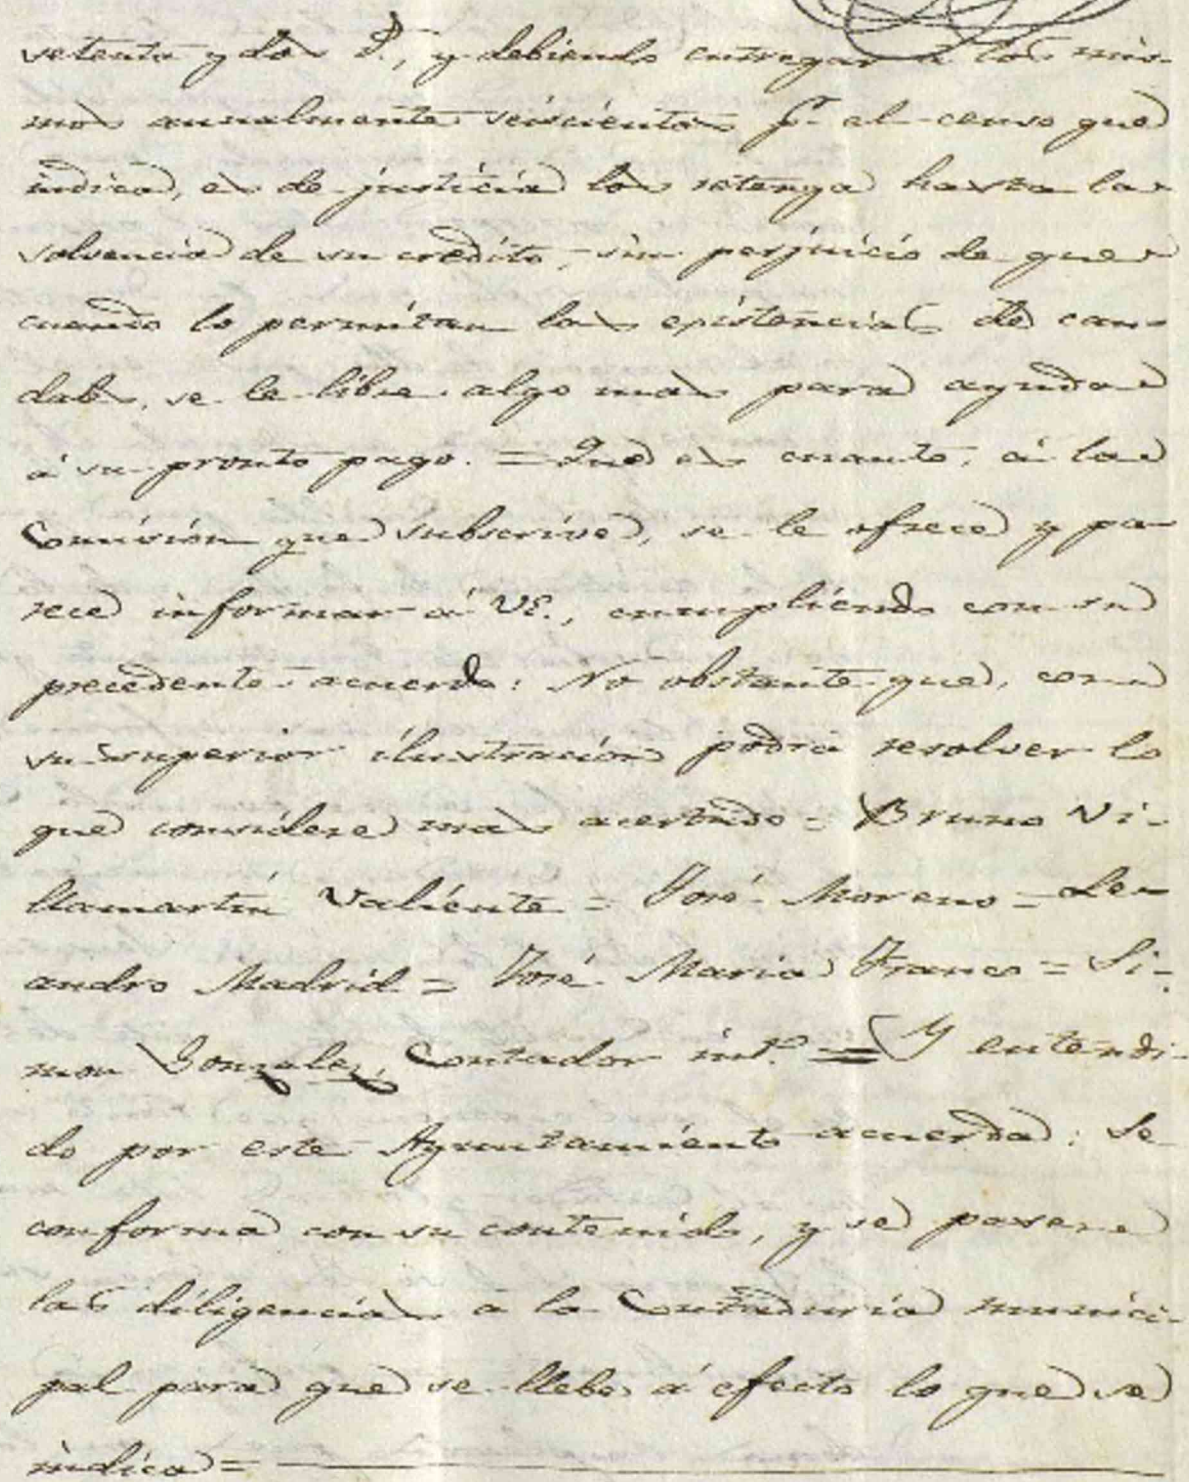 setenta y dos R.ˢ, y debiendo entregar á los mis-
mos annalmente seiscientos p.ʳ el censo que
indica, es de justicia los retenga hasta la
solvencia de su crédito, sin perjuicio de que
cuando lo permitan las existencias de cau-
dales, se le libre algo mas para ayuda
á su pronto pago. = Que es cuanto, á la
Comisión que subscrive, se le ofrece y pa-
rece informar á VE., cumpliendo con su
precedente acuerdo: No obstante que, con
su superior ilustración podrá resolver lo
que considere mas acertado = Bruno Vi-
llamartin Valiente = José Moreno = Le-
andro Madrid = José Maria Franco = Si-
mon Gonzalez, Contador int.º = Y entendi-
do por este Ayuntamiento acuerda: Se
conforma con su contenido, y se pasen
las diligencias a la Contaduría munici-
pal para que se llebe á efecto lo que se
indica =